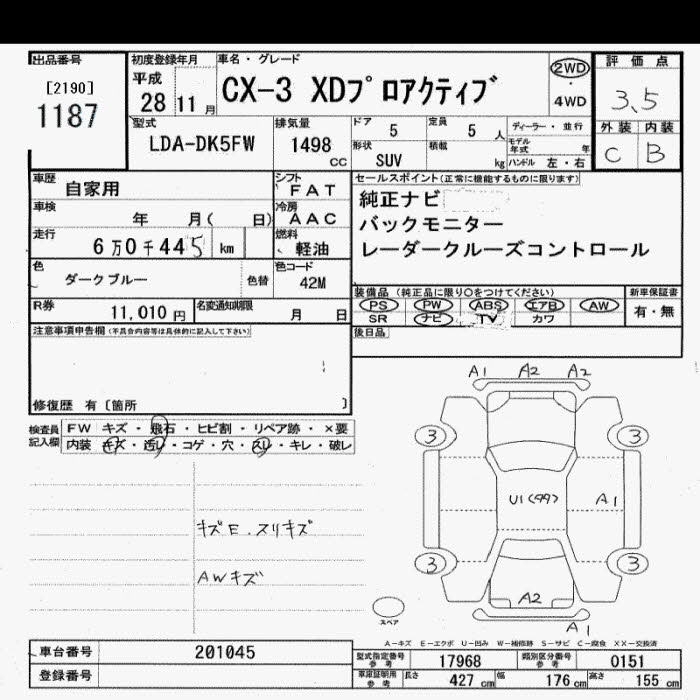 出品番号
[2190]
1187
初度登録年月
平成
28 11 月
車名・グレード
CX-3 XDプロアクティブ
2WD
・
4WD
評価点
3.5
外装 内装
C B
型式
LDA-DK5FW
排気量
1498 CC
ドア
5
定員
5 人
形状
SUV
積載
kg
ディーラー・並行
モデル年式 年
ハンドル 左・右
車歴
自家用
シフト
FAT
車検
年 月( 日)
冷房
AAC
走行
6万0千445 km
燃料
軽油
色
ダークブルー
色替
色コード
42M
R券
11,010 円
名変通知期限
月 日
セールスポイント(正常に機能するものに限ります)
純正ナビ
バックモニター
レーダークルーズコントロール
装備品(純正品に限り○をつけてください)
新車保証書
PS PW ABS エアB AW
有・無
SR ナビ TV カワ
後日品
注意事項申告欄(不具合内容等は具体的に記入して下さい)
修復歴 有〔箇所 〕
検査員記入欄
FW キズ・飛石・ヒビ割・リペア跡・×要
内装 キズ・汚レ・コゲ・穴・スリ・キレ・破レ
キズE.スリキズ
AWキズ
A1 A2 A2
3 3
U1(99) A1
3 3
A2
A1
スペア
A-キズ E-エクボ U-凹み W-補修跡 S-サビ C-腐食 XX-交換済
車台番号
201045
登録番号
型式指定番号参考
17968
類別区分番号参考
0151
車庫証明用参考
長さ 427 cm
幅 176 cm
高さ 155 cm